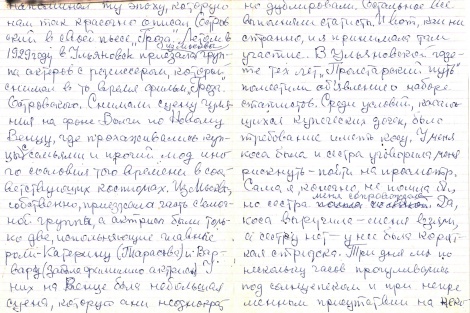 напоминал ту эпоху, которую
нам так красочно описал Остров-
ский в своей пьесе "Гроза". Летом в
1929 году в Ульяновск приехала группа
актеров с режиссером, который
снимал в то время фильм "Гроза"
Островского. Снимали сцену гуля-
ния на фоне Волги по Новому
Венцу, где прохаживались куп-
цы с семьями и прочий люд мно-
го сословий того времени в соот-
ветствующих костюмах. Из Москвы,
собственно, приезжала часть съемоч-
ной группы, а актрис было толь-
ко две, исполняющие главные
роли - Катерину (Тарасова) и Вар-
вару (забыла фамилию актрисы). У
них на Венце была небольшая
сцена, которую они неоднократ
но дублировали. Остальное все
заполняли статисты. И вот, как ни
странно, и я принимала там
участие. В Ульяновской газе-
те тех лет, "Пролетарский путь"
поместили объявление о наборе
статистов. Среди условий, касаю-
щихся купеческих дочек, было
требование иметь косу. У меня
коса была и сестра уговорила меня
рискнуть - пойти на просмотр.
Сама я, конечно, не пошла бы,
но сестра меня сопровождала. Да,
коса выручила - меня взяли,
а сестру нет - у нее была корот-
кая стрижка. Три дня мы по
нескольку часов прогуливались
под солнцепеком и при непре-
менным присутствии на